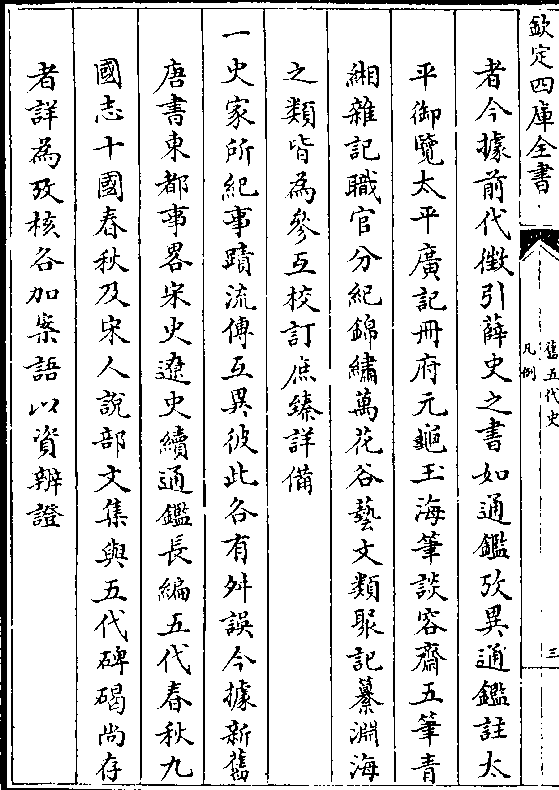 欽定四庫全書
舊五代史
凡例
三
者今據前代徴引薛史之書如通鑑攷異通鑑註太
平御覽太平廣記冊府元龜玉海筆談容齋五筆青
緗雜記職官分紀錦繡萬花谷藝文類聚記纂淵海
之類皆為參互校訂庶臻詳備
一史家所紀事蹟流傳互異彼此各有舛誤今據新舊
唐書東都事畧宋史遼史續通鑑長編五代春秋九
國志十國春秋及宋人說部文集與五代碑碣尚存
者詳為攷核各加案語以資辨證